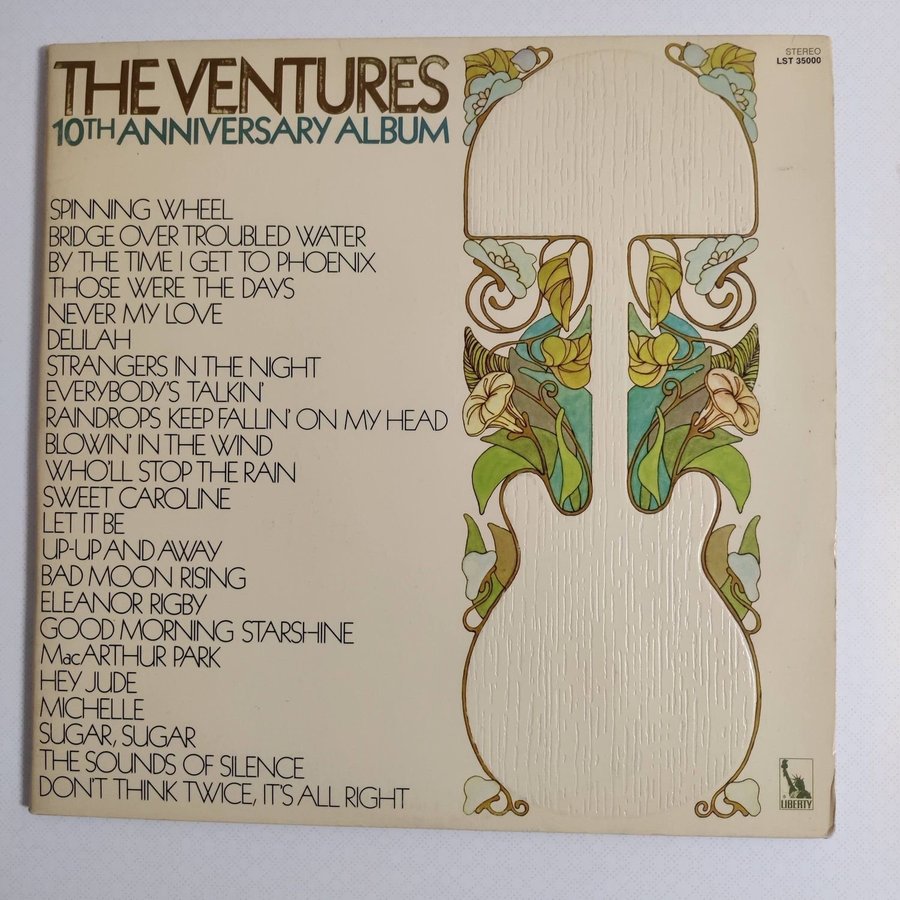 THE VENTURES
10TH ANNIVERSARY ALBUM
STEREO
LST 35000
SPINNING WHEEL
BRIDGE OVER TROUBLED WATER
BY THE TIME I GET TO PHOENIX
THOSE WERE THE DAYS
NEVER MY LOVE
DELILAH
STRANGERS IN THE NIGHT
EVERYBODY'S TALKIN'
RAINDROPS KEEP FALLIN' ON MY HEAD
BLOWIN' IN THE WIND
WHO'LL STOP THE RAIN
SWEET CAROLINE
LET IT BE
UP-UP AND AWAY
BAD MOON RISING
ELEANOR RIGBY
GOOD MORNING STARSHINE
MacARTHUR PARK
HEY JUDE
MICHELLE
SUGAR, SUGAR
THE SOUNDS OF SILENCE
DON'T THINK TWICE, IT'S ALL RIGHT
LIBERTY